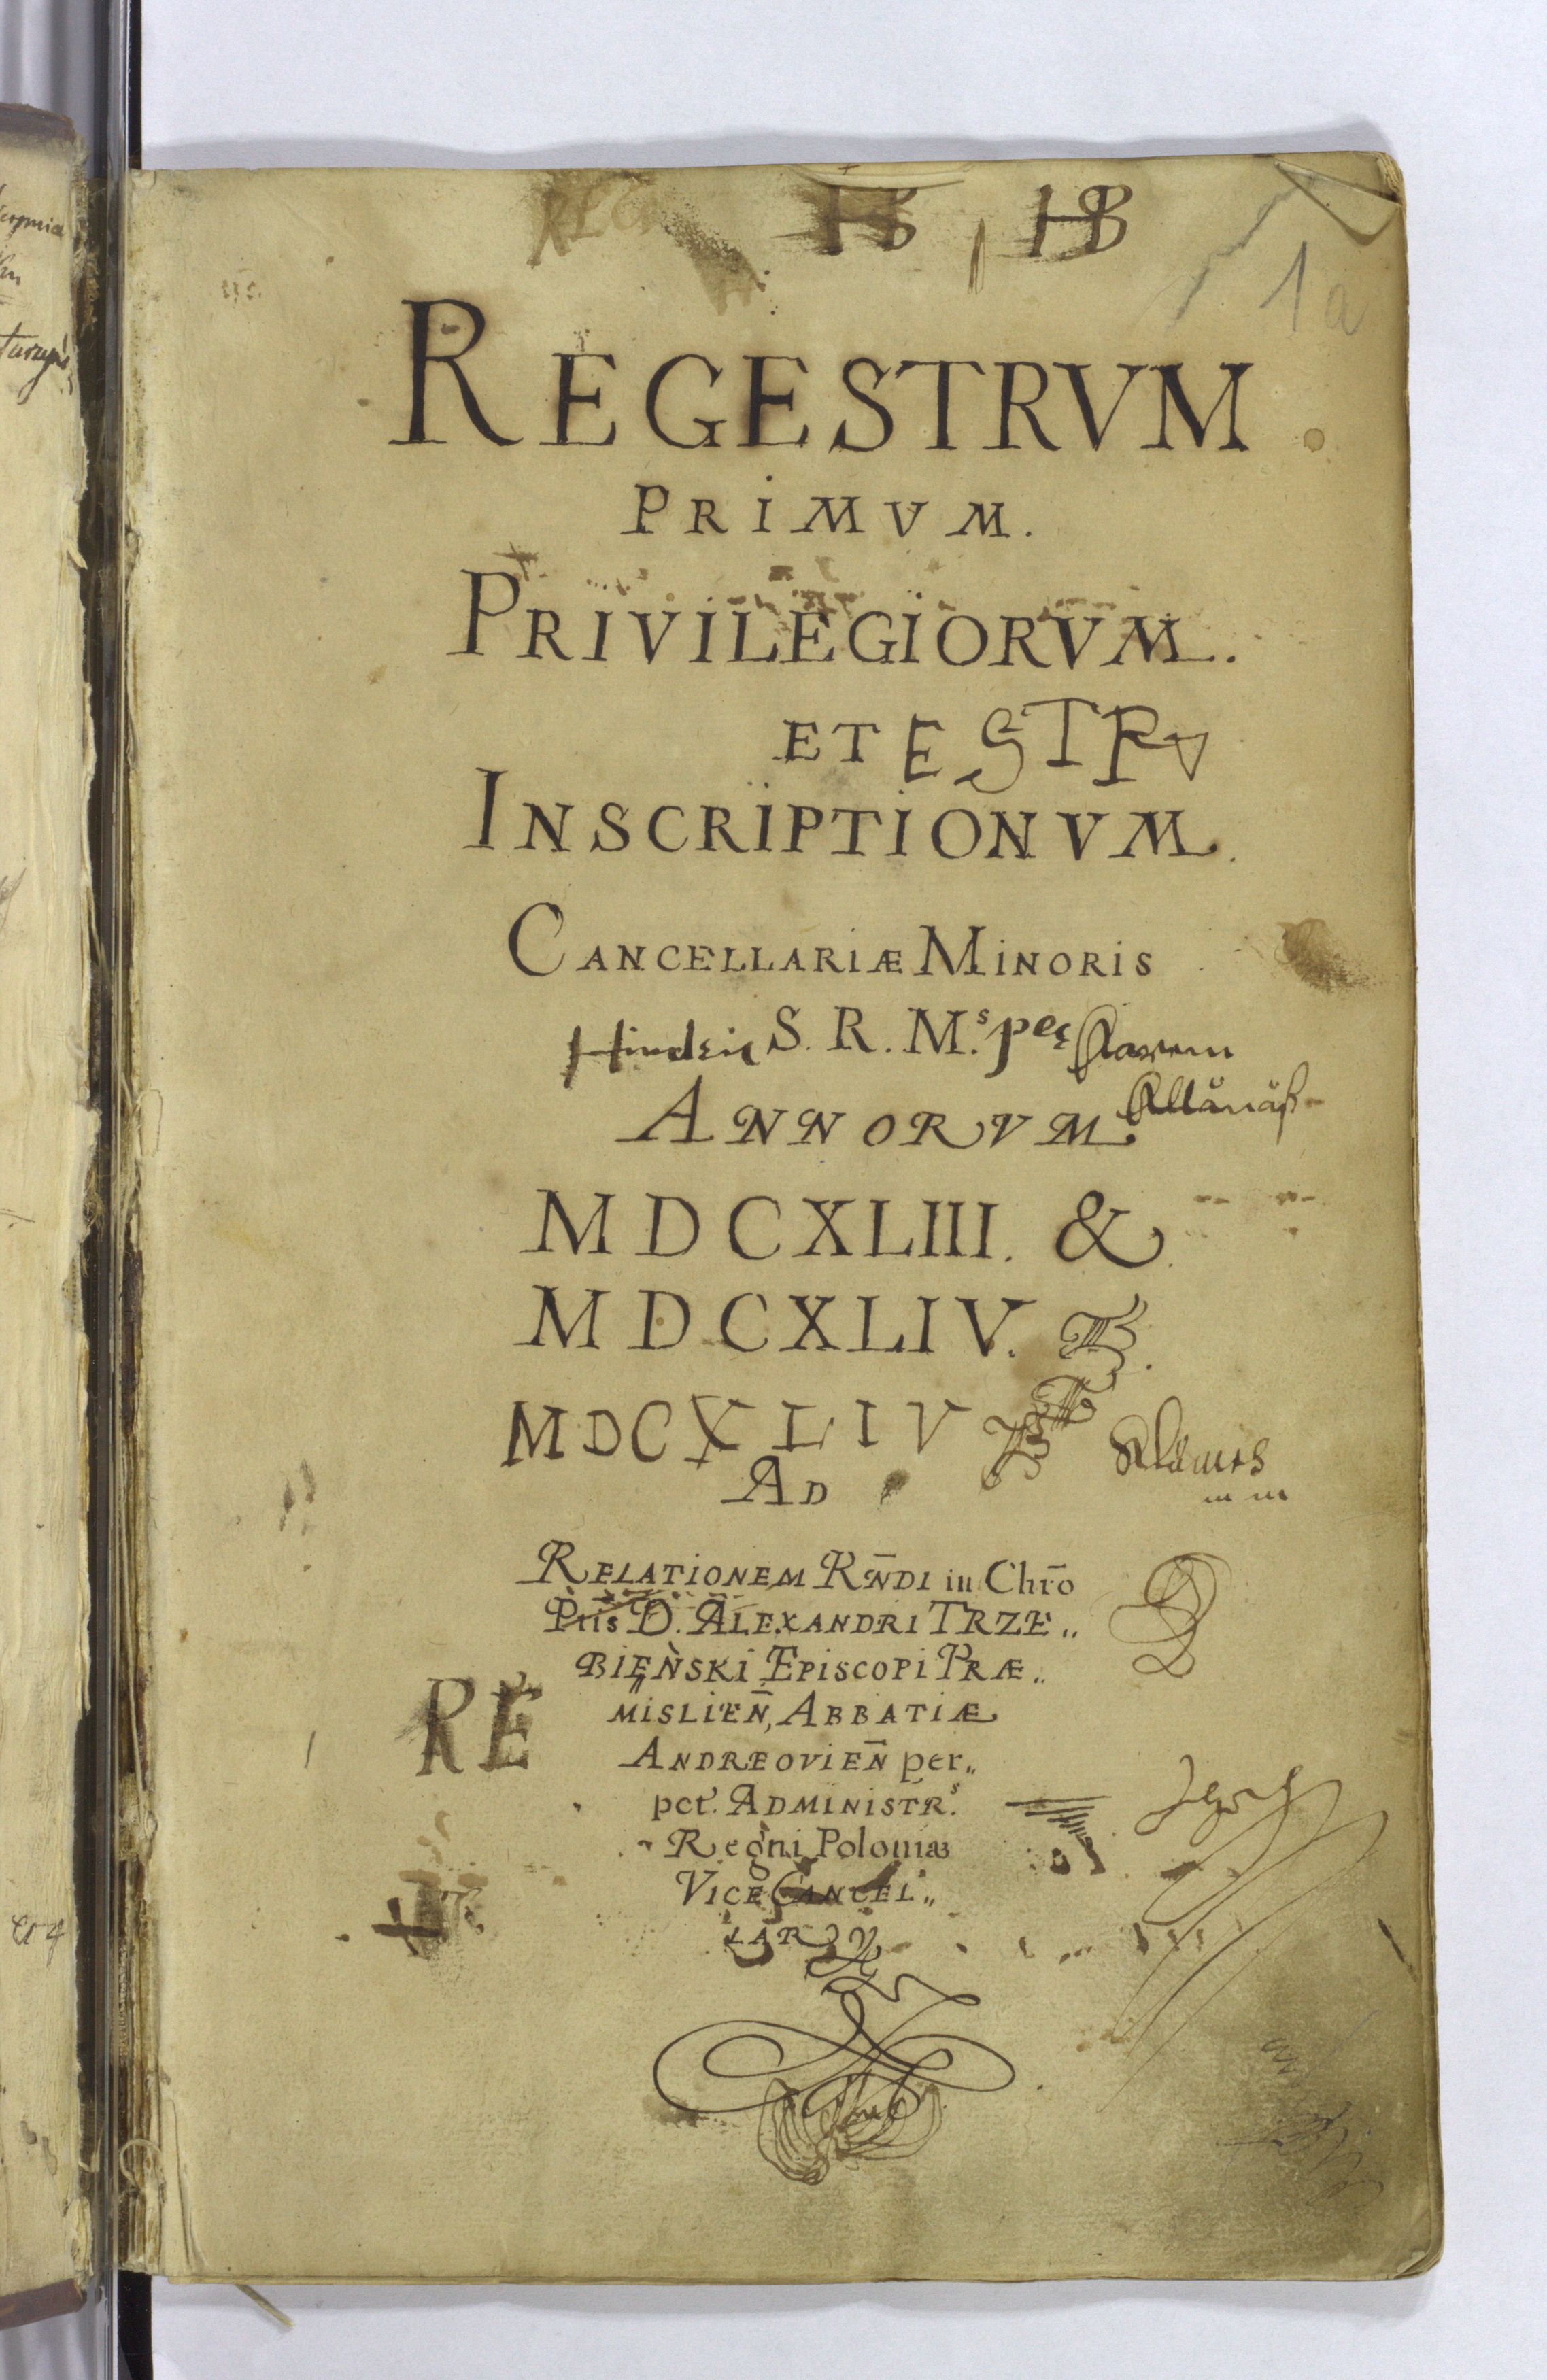 HB HB
1a
REGESTRVM
PRIMVM.
PRIVILEGIORVM.
ET ESTRV
INSCRIPTIONVM.
CANCELLARIÆ MINORIS
S. R. M.s
ANNORVM
MDCXLIII. &
MDCXLIV.
MDCXLIV
AD
RELATIONEM RN̄DI in Chr̄o
Ptis D. ALEXANDRI TRZE„
BIEŃSKI EPISCOPI PRÆ„
MISLIEN̄, ABBATIÆ
RE
ANDREOVIEN̄ per„
pet. ADMINISTR.s
Regni Poloniæ
VICECANCEL„
LARY